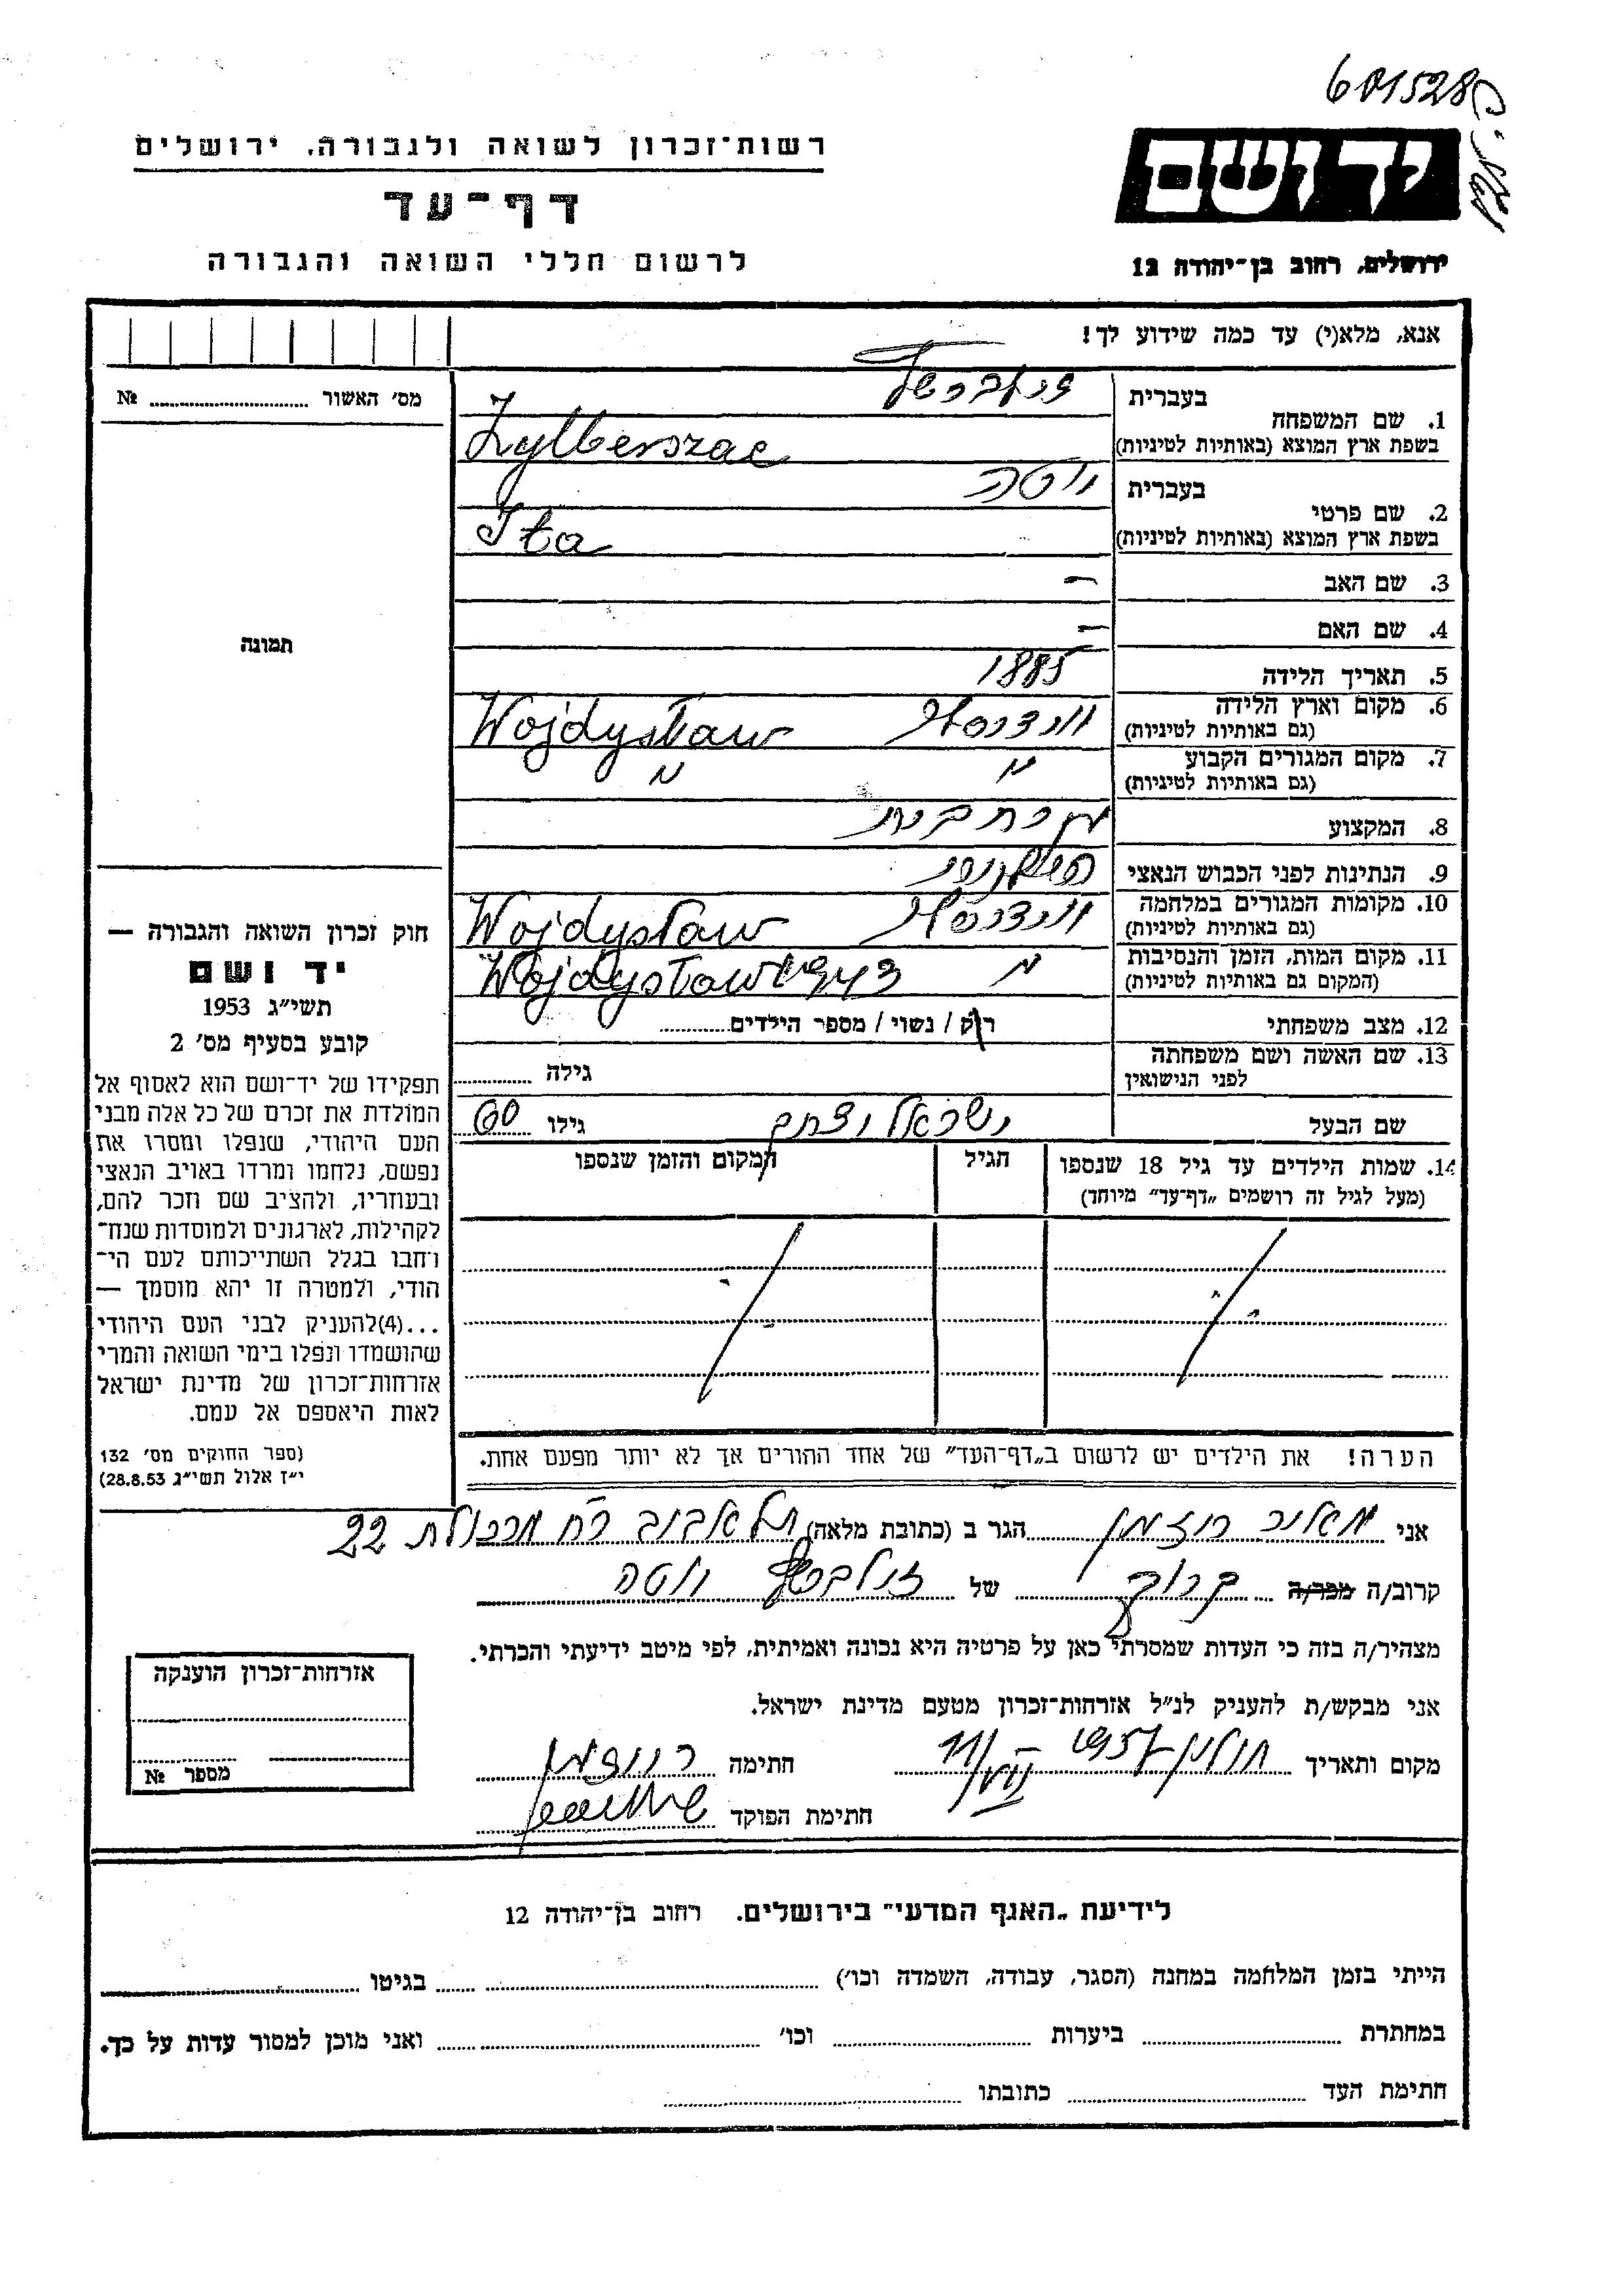 6015280
רשות־זכרון לשואה ולגבורה. ירושלים
דף־עד
לרשום חללי השואה והגבורה
יד ושם
ירושלים, רחוב בן־יהודה 12
אנא, מלא(י) עד כמה שידוע לך!
מס' האשור № 
1. שם המשפחה
בעברית
בשפת ארץ המוצא (באותיות לטיניות) Zylberszac
2. שם פרטי
בעברית ויטה
בשפת ארץ המוצא (באותיות לטיניות) Ita
3. שם האב –
4. שם האם –
תמונה
5. תאריך הלידה 1885
6. מקום וארץ הלידה
(גם באותיות לטיניות) Wojdysław
7. מקום המגורים הקבוע
(גם באותיות לטיניות) " "
8. המקצוע
9. הנתינות לפני הכבוש הנאצי
10. מקומות המגורים במלחמה
(גם באותיות לטיניות) Wojdysław
11. מקום המות, הזמן והנסיבות
(המקום גם באותיות לטיניות) " Wojdysław 1943
12. מצב משפחתי רוק / נשוי / מספר הילדים
13. שם האשה ושם משפחתה
לפני הנישואין גילה
שם הבעל ישראל יצחק גילו 60
14. שמות הילדים עד גיל 18 שנספו הגיל המקום והזמן שנספו
(מעל לגיל זה רושמים „דף־עד" מיוחד)
הערה! את הילדים יש לרשום ב„דף־העד" של אחד ההורים אך לא יותר מפעם אחת.
חוק זכרון השואה והגבורה —
יד ושם
תשי"ג 1953
קובע בסעיף מס' 2
תפקידו של יד־ושם הוא לאסוף אל
המולדת את זכרם של כל אלה מבני
העם היהודי, שנפלו ומסרו את
נפשם, נלחמו ומרדו באויב הנאצי
ובעוזריו, ולהציב שם וזכר להם,
לקהילות, לארגונים ולמוסדות שנח־
רחבו בגלל השתייכותם לעם הי־
הודי, ולמטרה זו יהא מוסמך —
...(4)להעניק לבני העם היהודי
שהושמדו ונפלו בימי השואה והמרי
אזרחות־זכרון של מדינת ישראל
לאות היאספם אל עמם.
(ספר החוקים מס' 132
י"ז אלול תשי"ג 28.8.53)
אני מאיר רוזמן הגר ב (כתובת מלאה) תל אביב רח מרכולת 22
קרוב/ה מכר/ה קרוב של ויטה
מצהיר/ה בזה כי העדות שמסרתי כאן על פרטיה היא נכונה ואמיתית, לפי מיטב ידיעתי והכרתי.
אני מבקש/ת להעניק לנ"ל אזרחות־זכרון מטעם מדינת ישראל.
מקום ותאריך חולון 11/VII – 1957 חתימה רוזמן
חתימת הפוקד
אזרחות־זכרון הוענקה
מספר №
לידיעת „האגף המדעי" בירושלים. רחוב בן־יהודה 12
הייתי בזמן המלחמה במחנה (הסגר, עבודה, השמדה וכו') בגיטו
במחתרת ביערות וכו' ואני מוכן למסור עדות על כך.
חתימת העד כתובתו